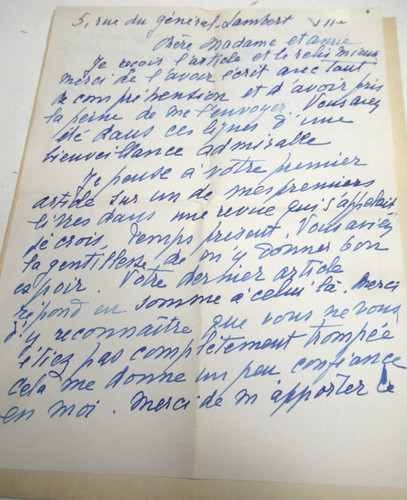 5, rue du général Lambert VIIe
Chère Madame et amie
Je reçois l'article et le relis mieux
merci de l'avoir écrit avec tant
de compréhension et d'avoir pris
la peine de me l'envoyer. Vous avez
été dans ces lignes d'une
bienveillance admirable
Je pense à votre premier
article sur un de mes premiers
livres dans une revue qui s'appelait
je crois, Temps présent. Vous aviez
la gentillesse de m'y donner bon
espoir. Votre dernier article
répond en somme à celui là. Merci
d'y reconnaître que vous ne vous
étiez pas complètement trompée
cela me donne un peu confiance
en moi. Merci de m'apporter ce